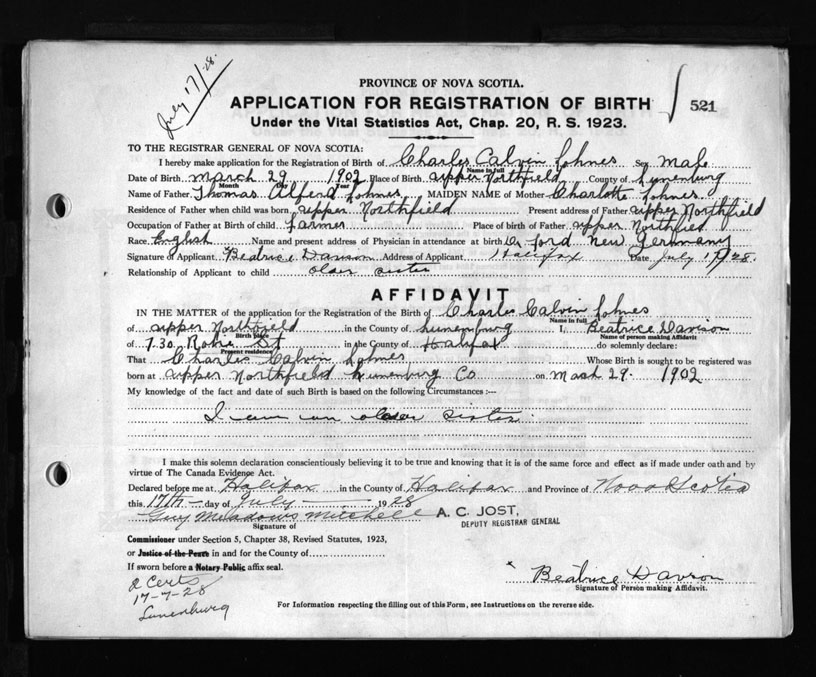 July 17/28.
PROVINCE OF NOVA SCOTIA.
APPLICATION FOR REGISTRATION OF BIRTH
521
Under the Vital Statistics Act, Chap. 20, R. S. 1923.
TO THE REGISTRAR GENERAL OF NOVA SCOTIA:
I hereby make application for the Registration of Birth of Charles Calvin Lohnes Sex male
Name in full
Date of Birth March 29 1902 Place of Birth upper Northfield County of Lunenburg
Month Day Year
Name of Father Thomas Alferd Lohnes MAIDEN NAME of Mother Charlotte Lohnes
Residence of Father when child was born upper Northfield Present address of Father upper Northfield
Occupation of Father at Birth of child farmer Place of birth of Father upper Northfield
Race English Name and present address of Physician in attendance at birth Dr Ford New Germany
Signature of Applicant Beatrice Davison Address of Applicant Halifax Date July 17/28.
Relationship of Applicant to child older sister
AFFIDAVIT
IN THE MATTER of the application for the Registration of the Birth of Charles Calvin Lohnes
Name in full
of upper Northfield in the County of Lunenburg I, Beatrice Davison
Birth place
Name of person making Affidavit
of 730 Robie St in the County of Halifax do solemnly declare:
Present residence
That Charles Calvin Lohnes Whose Birth is sought to be registered was
born at upper Northfield Lunenburg Co on March 29. 1902
My knowledge of the fact and date of such Birth is based on the following Circumstances :—
I am an older sister.
I make this solemn declaration conscientiously believing it to be true and knowing that it is of the same force and effect as if made under oath and by
virtue of The Canada Evidence Act.
Declared before me at Halifax in the County of Halifax and Province of Nova Scotia
this 17th day of July 1928
Guy Meadows Mitchell
A. C. JOST,
DEPUTY REGISTRAR GENERAL
Signature of
Commissioner under Section 5, Chapter 38, Revised Statutes, 1923,
or Justice of the Peace in and for the County of
If sworn before a Notary Public affix seal.
Beatrice Davison
Signature of Person making Affidavit.
2 Certs
17-7-28
Lunenburg
For Information respecting the filling out of this Form, see Instructions on the reverse side.